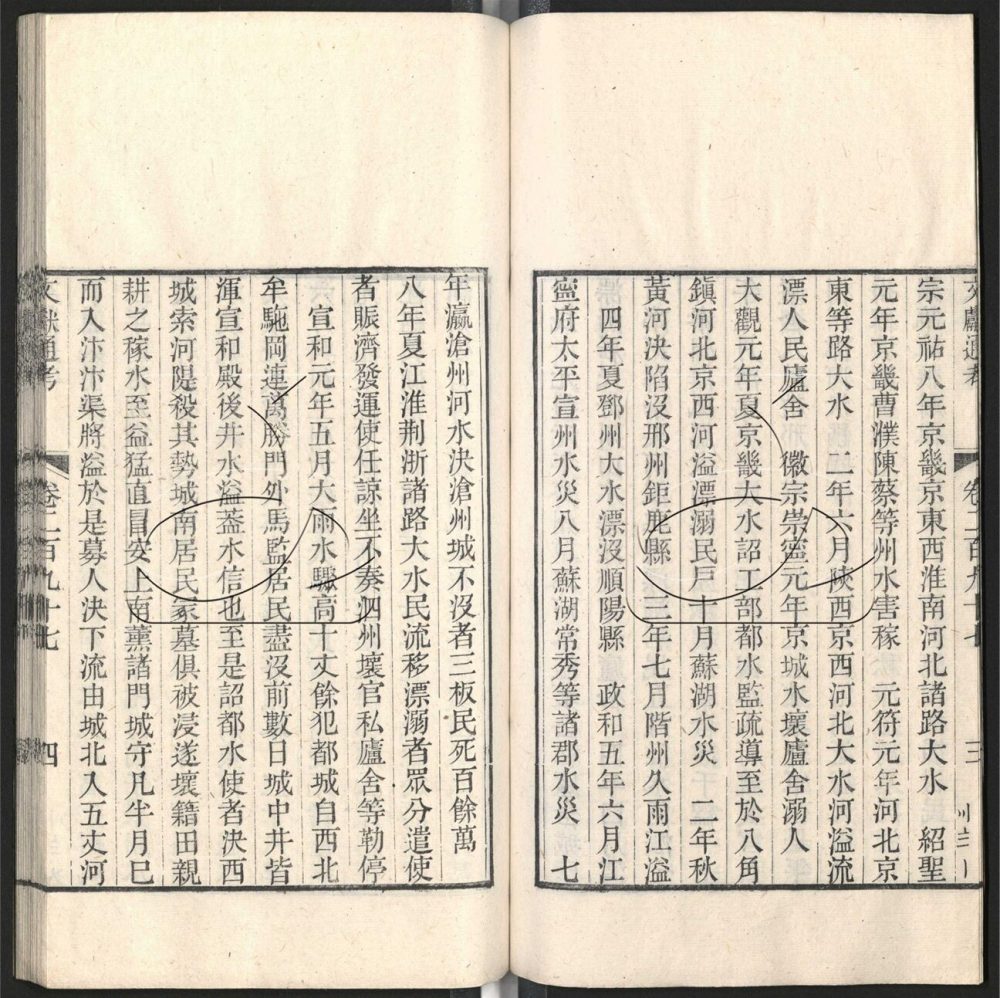 文獻通考 卷二百九十七 三
宗元祐八年京畿京東西淮南河北諸路大水 紹聖
元年京畿曹濮陳蔡等州水害稼 元符元年河北京
東等路大水 二年六月陝西京西河北大水河溢流
漂人民廬舍 徽宗崇寧元年京城水壞廬舍溺人
大觀元年夏京畿大水詔工部都水監疏導至於八角
鎮河北京西河溢漂溺民戶十月蘇湖水災 二年秋
黃河決陷沒邢州鉅鹿縣 三年七月階州久雨江溢
四年夏鄧州大水漂沒順陽縣 政和五年六月江
寧府太平宣州水災八月蘇湖常秀等諸郡水災 七
年瀛滄州河水決滄州城不沒者三板民死百餘萬
八年夏江淮荆浙諸路大水民流移漂溺者眾分遣使
者賑濟發運使任諒坐不奏泗州壞官私廬舍等勒停
宣和元年五月大雨水驟高十丈餘犯都城自西北
牟駞岡連萬勝門外馬監居民盡沒前數日城中井皆
渾宣和殿後井水溢葢水信也至是詔都水使者決西
城索河隄殺其勢城南居民冢墓俱被浸遂壞籍田親
耕之稼水至益猛直冒安上南薰諸門城守凡半月巳
而入汴汴渠將溢於是募人決下流由城北入五丈河
文獻通考 卷二百九十七 四